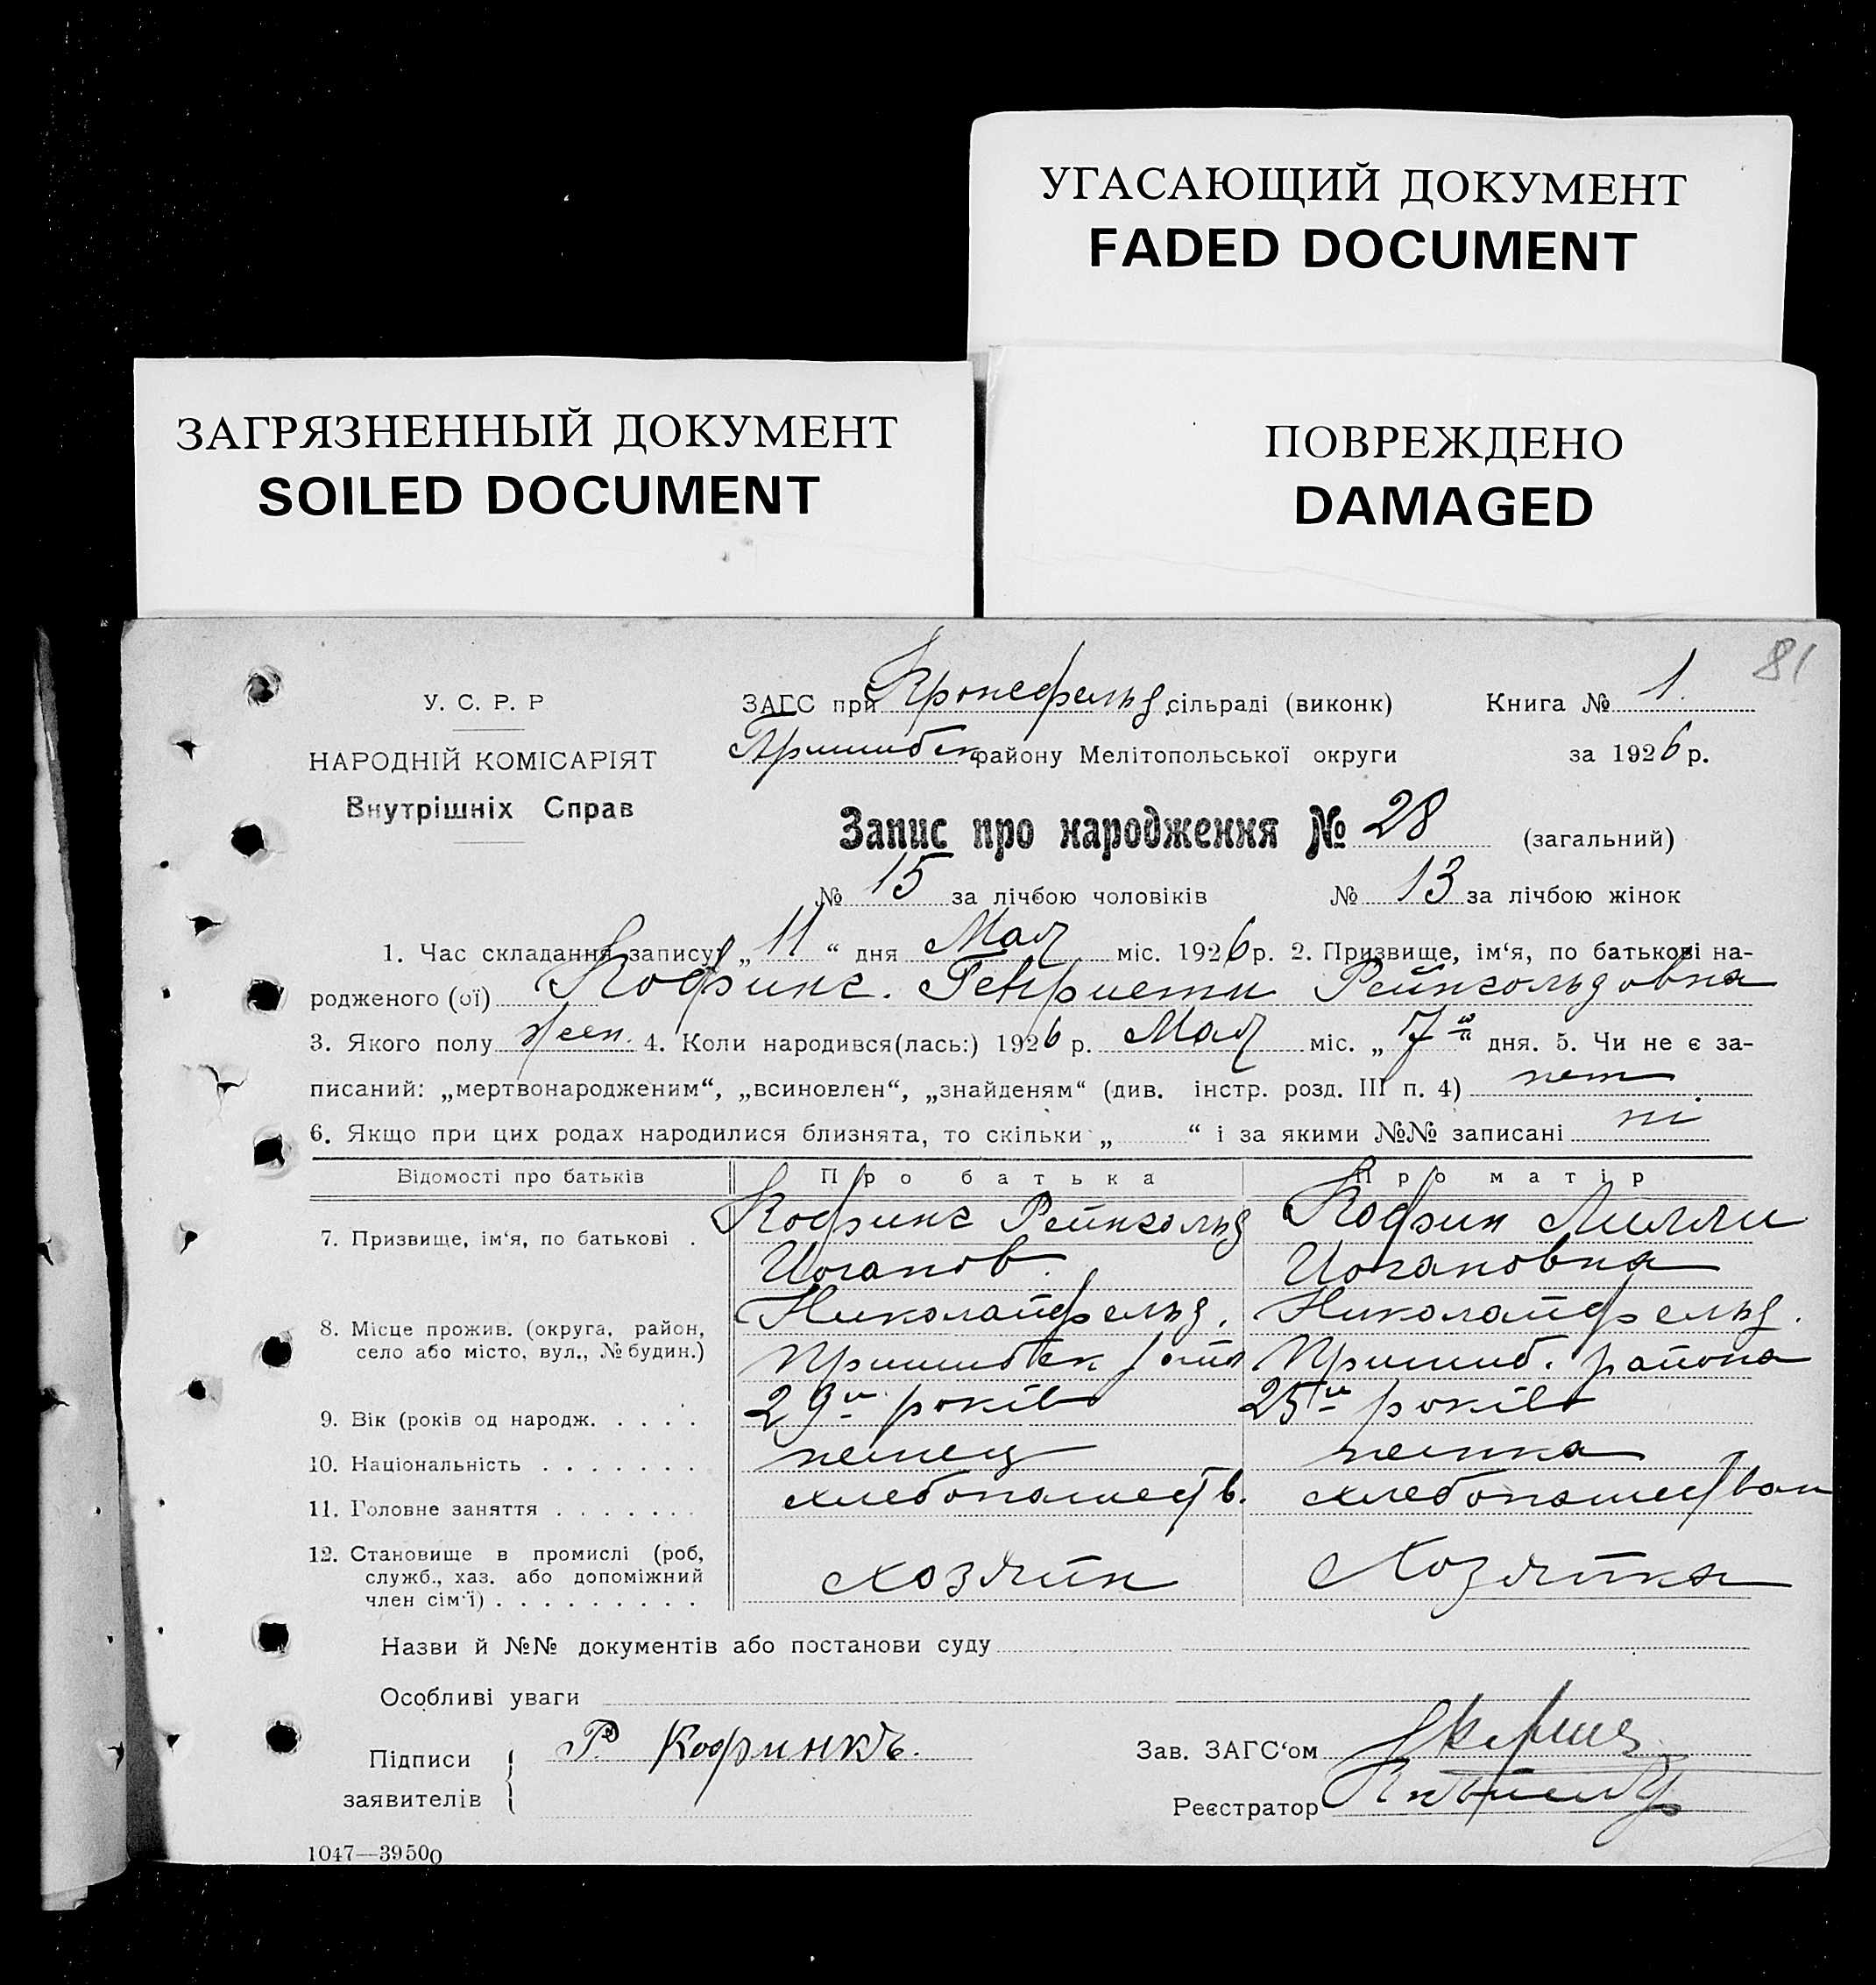 УГАСАЮЩИЙ ДОКУМЕНТ
FADED DOCUMENT
ЗАГРЯЗНЕННЫЙ ДОКУМЕНТ
SOILED DOCUMENT
ПОВРЕЖДЕНО
DAMAGED
81
У. С. Р. Р
НАРОДНІЙ КОМІСАРІЯТ
Внутрішніх Справ
ЗАГС при Кронефельд. сільраді (виконк) Книга № 1.
Пришибск району Мелітопольської округи за 1926 р.
Запис про народження № 28 (загальний)
№ 15 за лічбою чоловіків № 13 за лічбою жінок
1. Час складання запису: „ 11 “ дня Мая міс. 1926 р. 2. Призвище, ім‘я, по батькові на-
родженого (ої) Кофинг. Генриети Рейнгольдовна
3. Якого полу жен. 4. Коли народився(лась:) 1926 р. Мая міс. „ 7 “ дня. 5. Чи не є за-
писаний: „мертвонародженим“, „всиновлен“, „знайденям“ (див. інстр. розд. III п. 4) нет
6. Якщо при цих родах народилися близнята, то скільки „ “ і за якими №№ записані ні
Відомості про батьків Про батька Про матір
7. Призвище, ім‘я, по батькові . Кофринг Рейнгольд Кофрин Лилли
Иоганов. Иогановна
8. Місце прожив. (округа, район, Николайфельд. Николайфельд.
село або місто, вул., № будин.) Пришиб. района
9. Вік (років од народж. . . . . 29 років 25 років
10. Національність . . . . . . . немец немка
11. Головне заняття . . . . . . . хлебопашеств. хлебопашествам
12. Становище в промислі (роб,
служб., хаз. або допоміжний хозяйн Хозяйка
член сім‘ї) . . . . . . . . .
Назви й №№ документів або постанови суду
Особливі уваги
Підписи Р. Кофринкъ. Зав. ЗАГС‘ом
заявителів Реєстратор
1047—39500